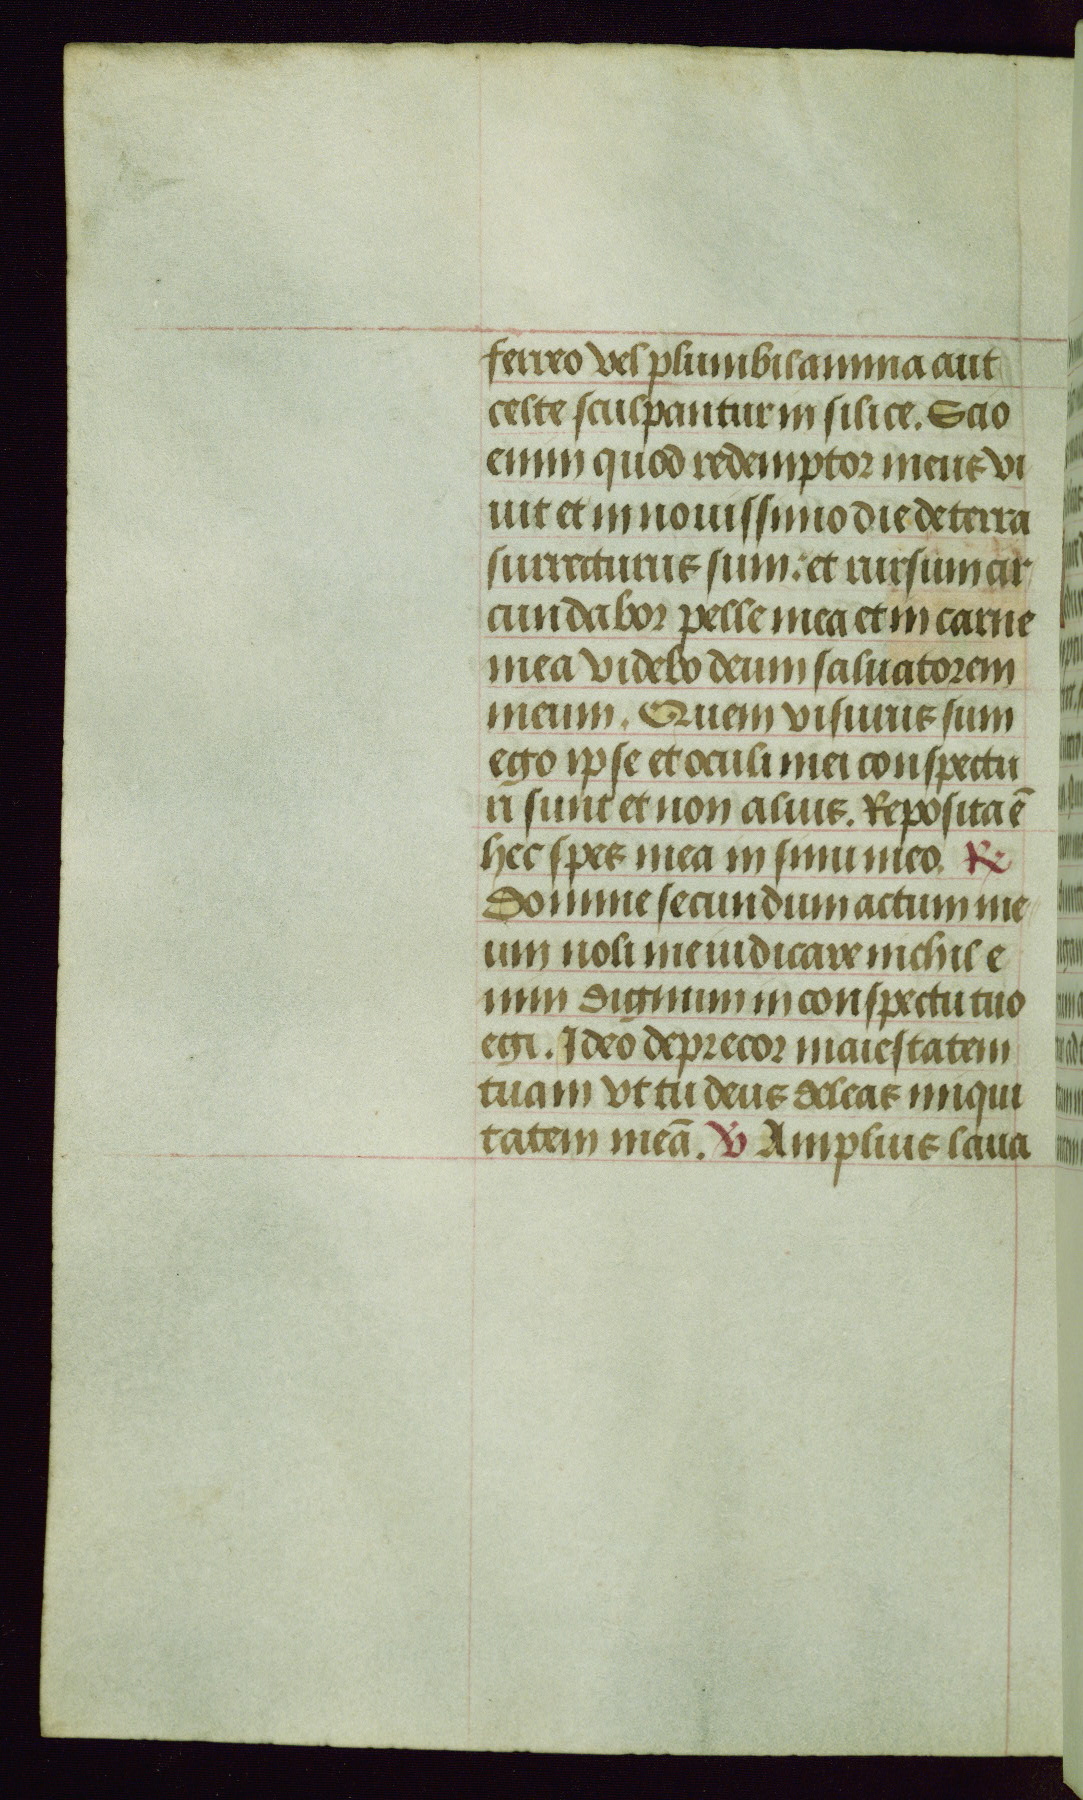 ferreo vel plumbi lamina aut
celte sculpantur in silice. Scio
enim quod redemptor meus vi
uit et in nouissimo die de terra
surrecturus sum: et rursum cir
cundabor pelle mea et in carne
mea videbo deum saluatorem
meum. Quem visurus sum
ego ipse et oculi mei conspectu
ri sunt et non alius. Reposita ē
hec spes mea in sinu meo. ℟
Domine secundum actum me
um noli me iudicare nichil e
nim dignum in conspectu tuo
egi. Ideo deprecor maiestatem
tuam vt tu deus deleas iniqui
tatem meā. ℣ Amplius laua